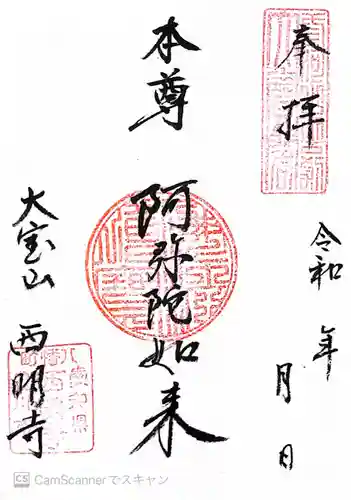 奉拝
令和 年 月 日
本尊
阿弥陀如来
大宝山
西明寺
CamScannerでスキャン